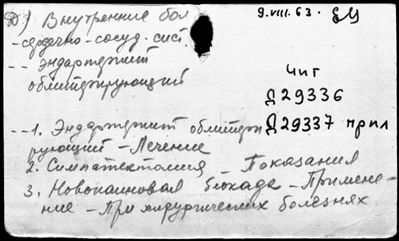 Д) Внутренние бол 9.VIII.63.
-сердечно-сосуд. сист
-- эндартериит
облитерирующий
Чиг
Д29336
Д29337 прил
--1. Эндартериит облитери
рующий - Лечение
2. Симпатектомия - Показания
3. Новокаиновая блокада - Примене-
ние - При хирургических болезнях